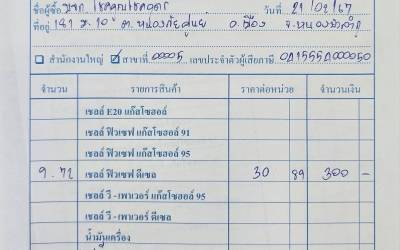 ชื่อผู้ซื้อ หจก. โชคคูณโชคอุดร วันที่ 21/02/67
ที่อยู่ 181 ม.10 ต.หนองภัยศูนย์ อ.เมือง จ.หนองบัวลำภู
สำนักงานใหญ่ ☑ สาขาที่ 00005 เลขประจำตัวผู้เสียภาษี
จำนวน รายการสินค้า ราคาต่อหน่วย จำนวนเงิน
เชลล์ E20 แก๊สโซฮอล์
เชลล์ ฟิวเซฟ แก๊สโซฮอล์ 91
เชลล์ ฟิวเซฟ แก๊สโซฮอล์ 95
9.72 เชลล์ ฟิวเซฟ ดีเซล 30 89 300 -
เชลล์ วี - เพาเวอร์ แก๊สโซฮอล์ 95
เชลล์ วี - เพาเวอร์ ดีเซล
น้ำมันเครื่อง